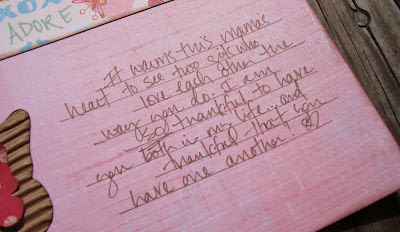 XOX
ADORE
It warms this mama's
heart to see two girls who
love each other the
way you do. I am
so thankful to have
you both in my life... and
thankful that you
have one another!